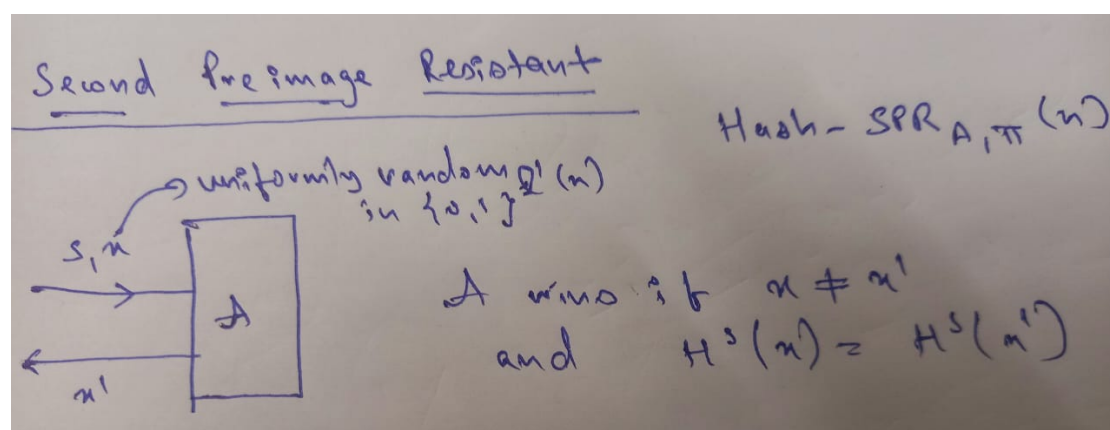 Second Preimage Resistant
Hash-SPR A,π (n)
uniformly random
in {0,1}^l'(n)
s, x
A
x'
A wins if x ≠ x'
and H^s(x) = H^s(x')